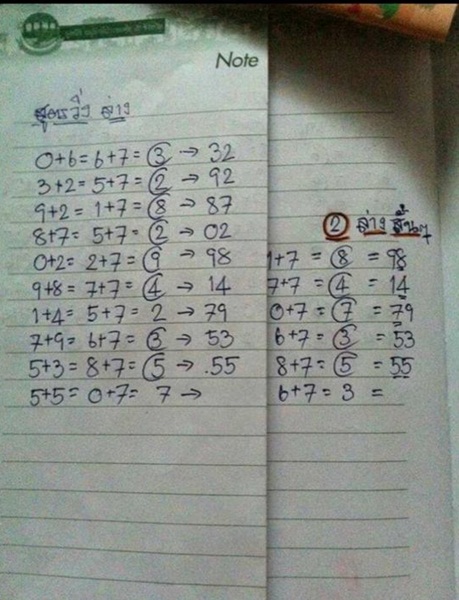 Note
สูตรวิ่ง ล่าง
0+6=6+7=3→32
3+2=5+7=2→92
9+2=1+7=8→87
8+7=5+7=2→02
0+2=2+7=9→98
9+8=7+7=4→14
1+4=5+7=2→79
7+9=6+7=3→53
5+3=8+7=5→.55
5+5=0+7=7→
2 ล่าง สั้นๆ
1+7=8=98
7+7=4=14
0+7=7=79
6+7=3=53
8+7=5=55
6+7=3=